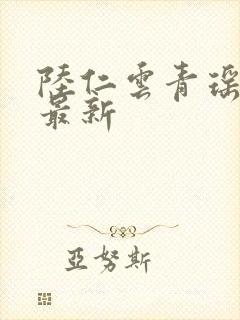 陸仁雲青瑶
最新
亞努斯